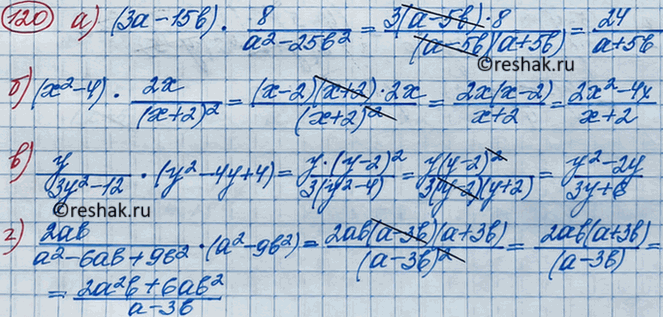 120 а) (3a-15b) · 8/(a²-25b²) = 3(a-5b)·8/((a-5b)(a+5b)) = 24/(a+5b)
©reshak.ru
б) (x²-4) · 2x/(x+2)² = (x-2)(x+2)·2x/(x+2)² = 2x(x-2)/(x+2) = (2x²-4x)/(x+2)
в) y/(3y²-12) · (y²-4y+4) = y·(y-2)²/(3(y²-4)) = y(y-2)²/(3(y-2)(y+2)) = (y²-2y)/(3y+6)
©reshak.ru
г) 2ab/(a²-6ab+9b²) · (a²-9b²) = 2ab(a-3b)(a+3b)/(a-3b)² = 2ab(a+3b)/(a-3b) =
= (2a²b+6ab²)/(a-3b)